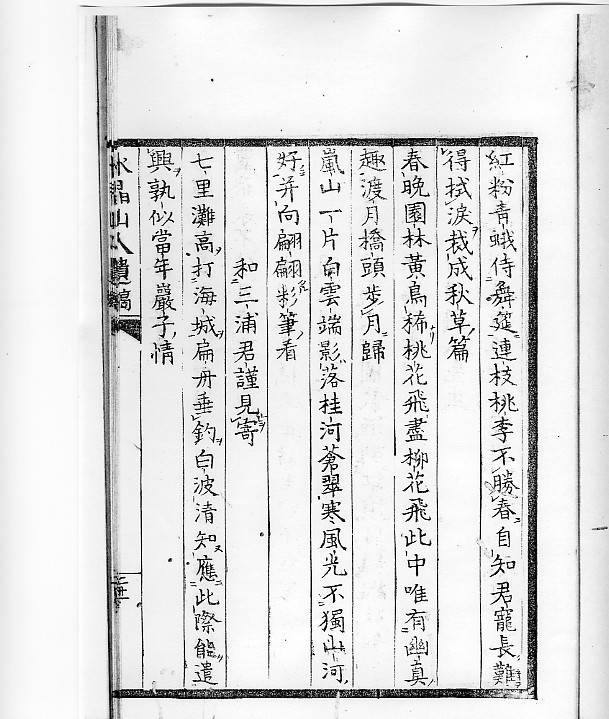 紅粉青蛾侍舞筵連枝桃李不勝春自知君寵長難
得拭淚裁成秋草篇
春晚園林黃鳥稀桃花飛盡柳花飛此中唯有幽真
趣渡月橋頭步月歸
嵐山一片白雲端影落桂河蒼翠寒風光不獨山河
好并向翩翩彩筆看
和三浦君謹見寄
七里灘高打海城扁舟垂釣白波清知應此際能遣
興孰似當年嚴子情
水晶山人遺稿